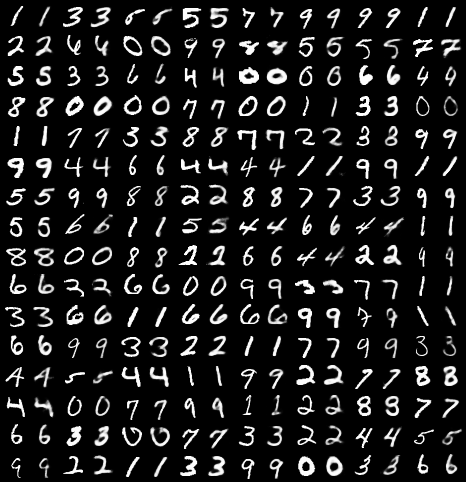 1 1 3 3 5 5 5 5 7 7 9 9 9 9 1 1
2 2 6 6 0 0 9 9 8 8 5 5 5 5 7 7
5 5 3 3 6 6 4 4 0 0 0 0 6 6 9 9
8 8 0 0 0 0 7 7 0 0 1 1 3 3 0 0
1 1 7 7 3 3 8 8 7 7 2 2 3 3 9 9
9 9 4 4 6 6 4 4 4 4 1 1 9 9 1 1
5 5 9 9 8 8 2 2 8 8 7 7 3 3 9 9
5 5 6 6 1 1 5 5 4 4 6 6 4 4 1 1
8 8 0 0 8 8 2 2 6 6 4 4 2 2 9 9
6 6 2 2 6 6 0 0 9 9 3 3 7 7 1 1
3 3 6 6 1 1 6 6 6 6 9 9 7 7 1 1
6 6 9 9 3 3 2 2 1 1 7 7 9 9 3 3
4 4 5 5 4 4 1 1 9 9 2 2 7 7 8 8
4 4 0 0 7 7 9 9 1 1 2 2 8 8 7 7
6 6 3 3 0 0 7 7 3 3 2 2 4 4 5 5
9 9 2 2 1 1 3 3 9 9 0 0 3 3 6 6